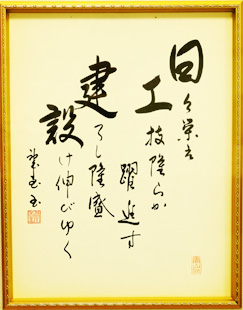 日々栄え
工技隆らか
躍進す
建てし隆盛
設け伸びゆく